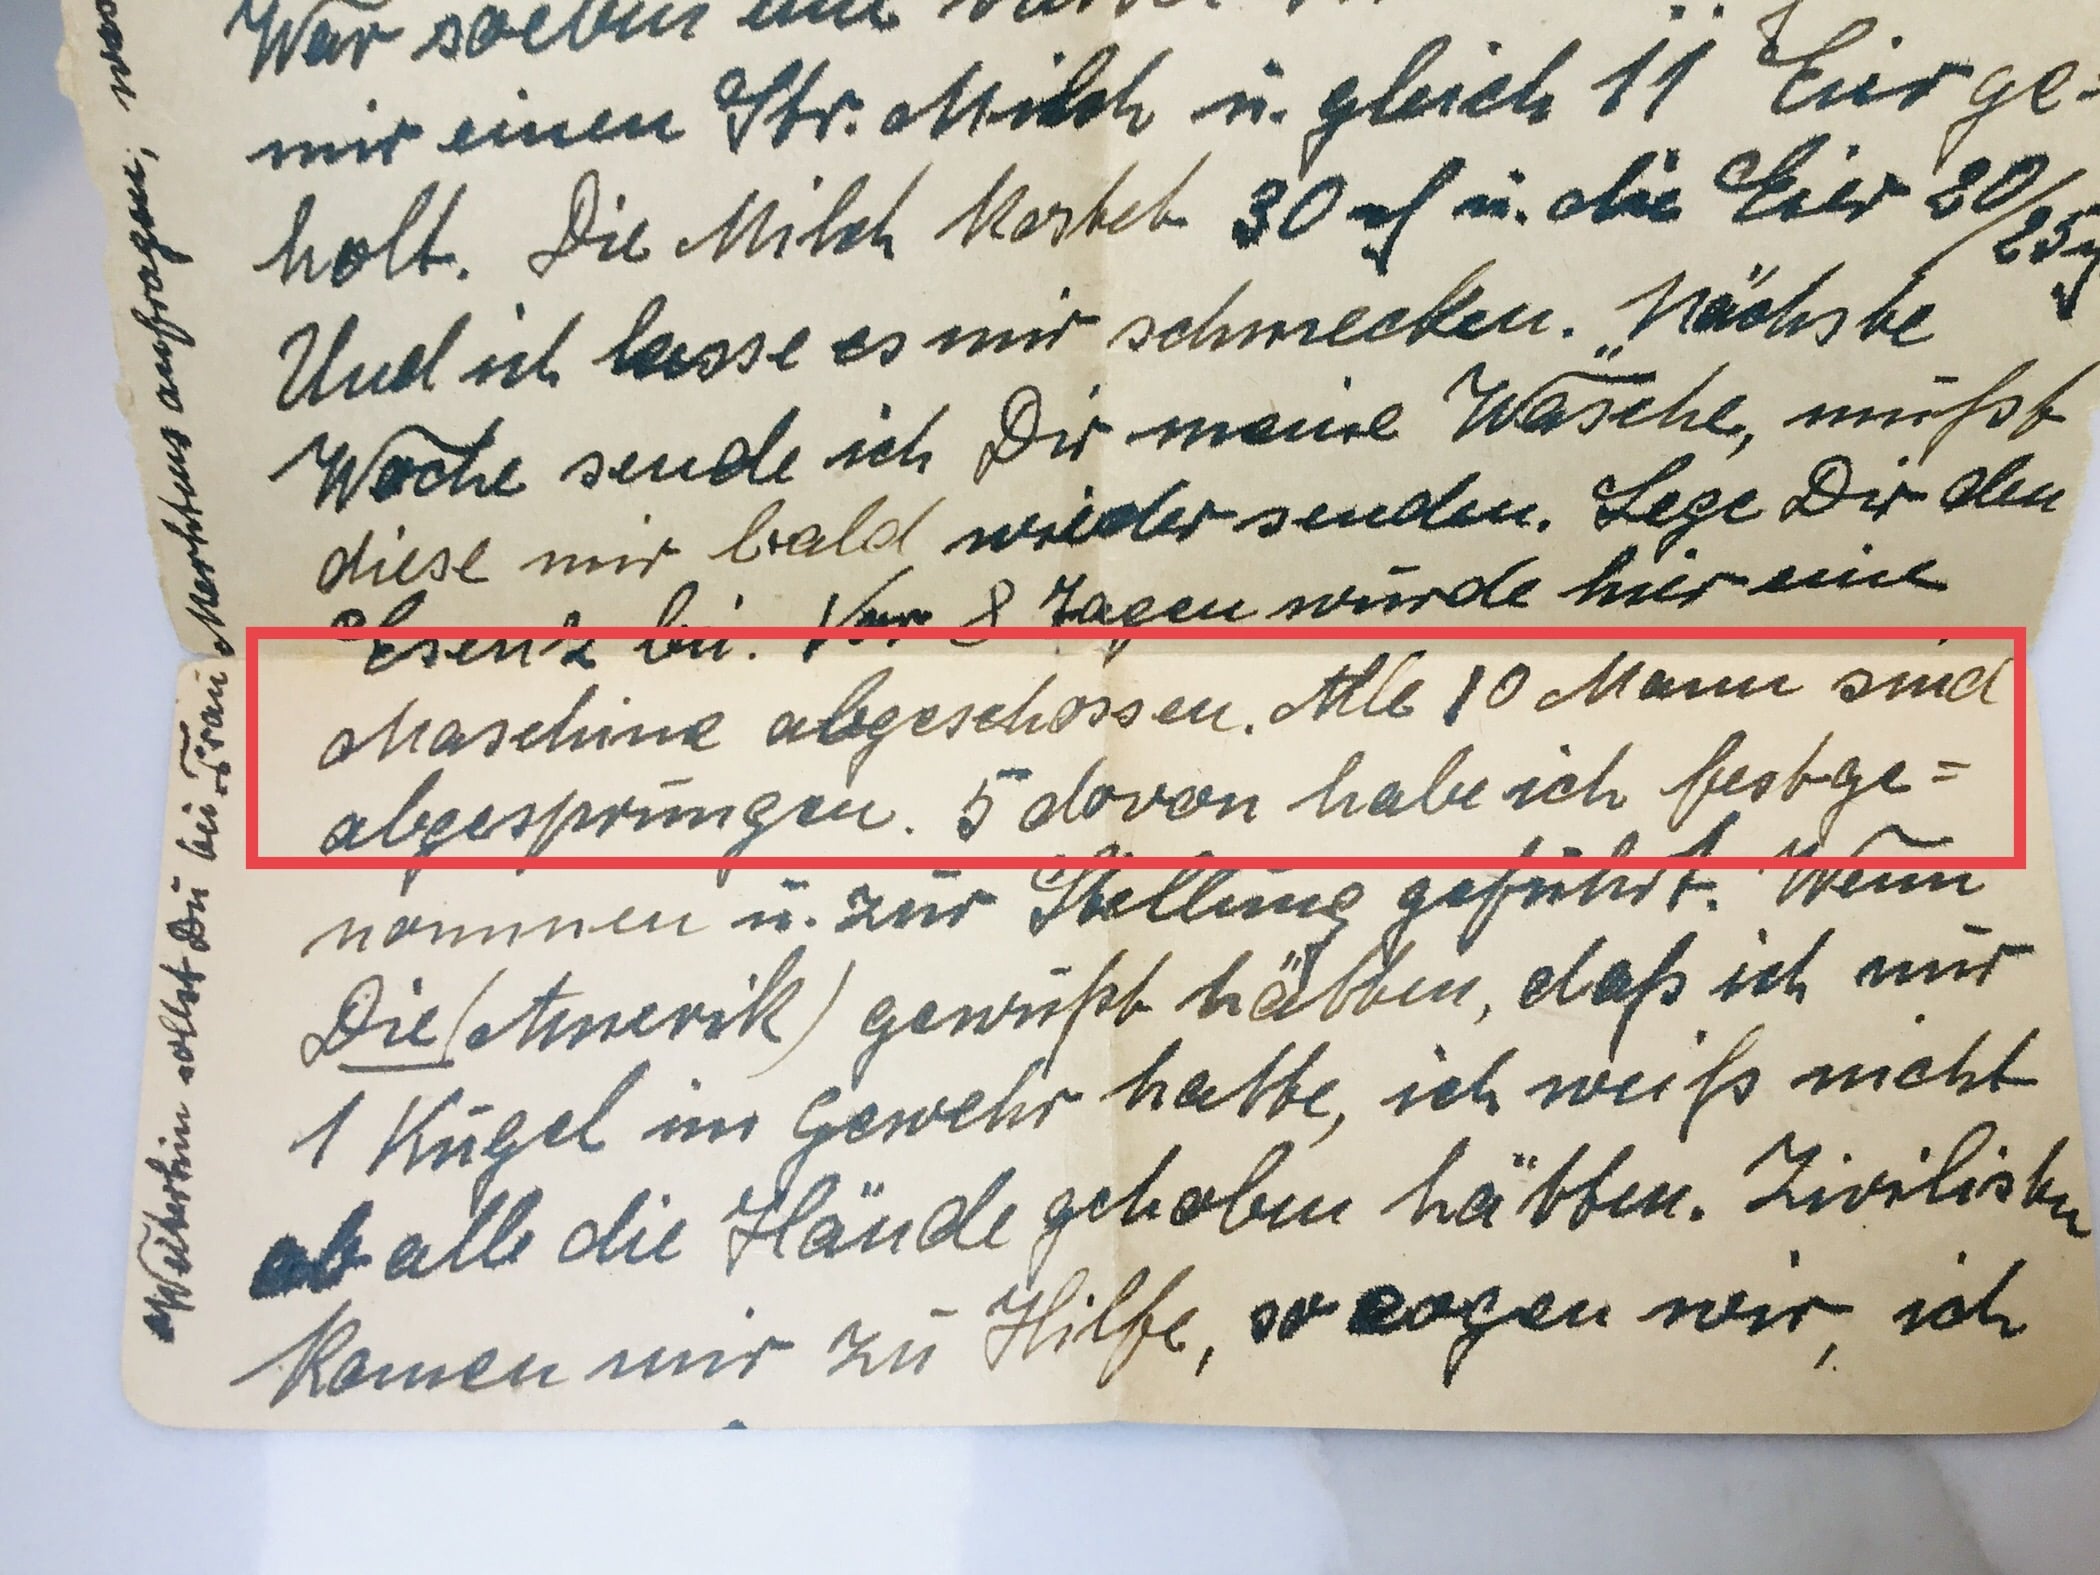 War soeben
mir einen Ltr. Milch u. gleich 11 Eier ge=
holt. Die Milch kostet 30 ₰ u. die Eier 20/25 ₰
Und ich lasse es mir schmecken. Nächste
Woche sende ich Dir meine Wäsche, mußt
diese mir bald wieder senden. Lege Dir den
Esenz bei. Vor 8 Tagen wurde hier eine
Maschine abgeschossen. Alle 10 Mann sind
abgesprungen. 5 davon habe ich festge=
nommen u. zur Stellung geführt. Wenn
Die (Amerik) gewußt hätten, daß ich nur
1 Kugel im Gewehr hatte, ich weiß nicht
ob alle die Hände gehoben hätten. Zivilisten
kamen mir zu Hilfe, so zogen wir, ich
Weiterhin sollst Du bei Frau Merhtens anfragen, was